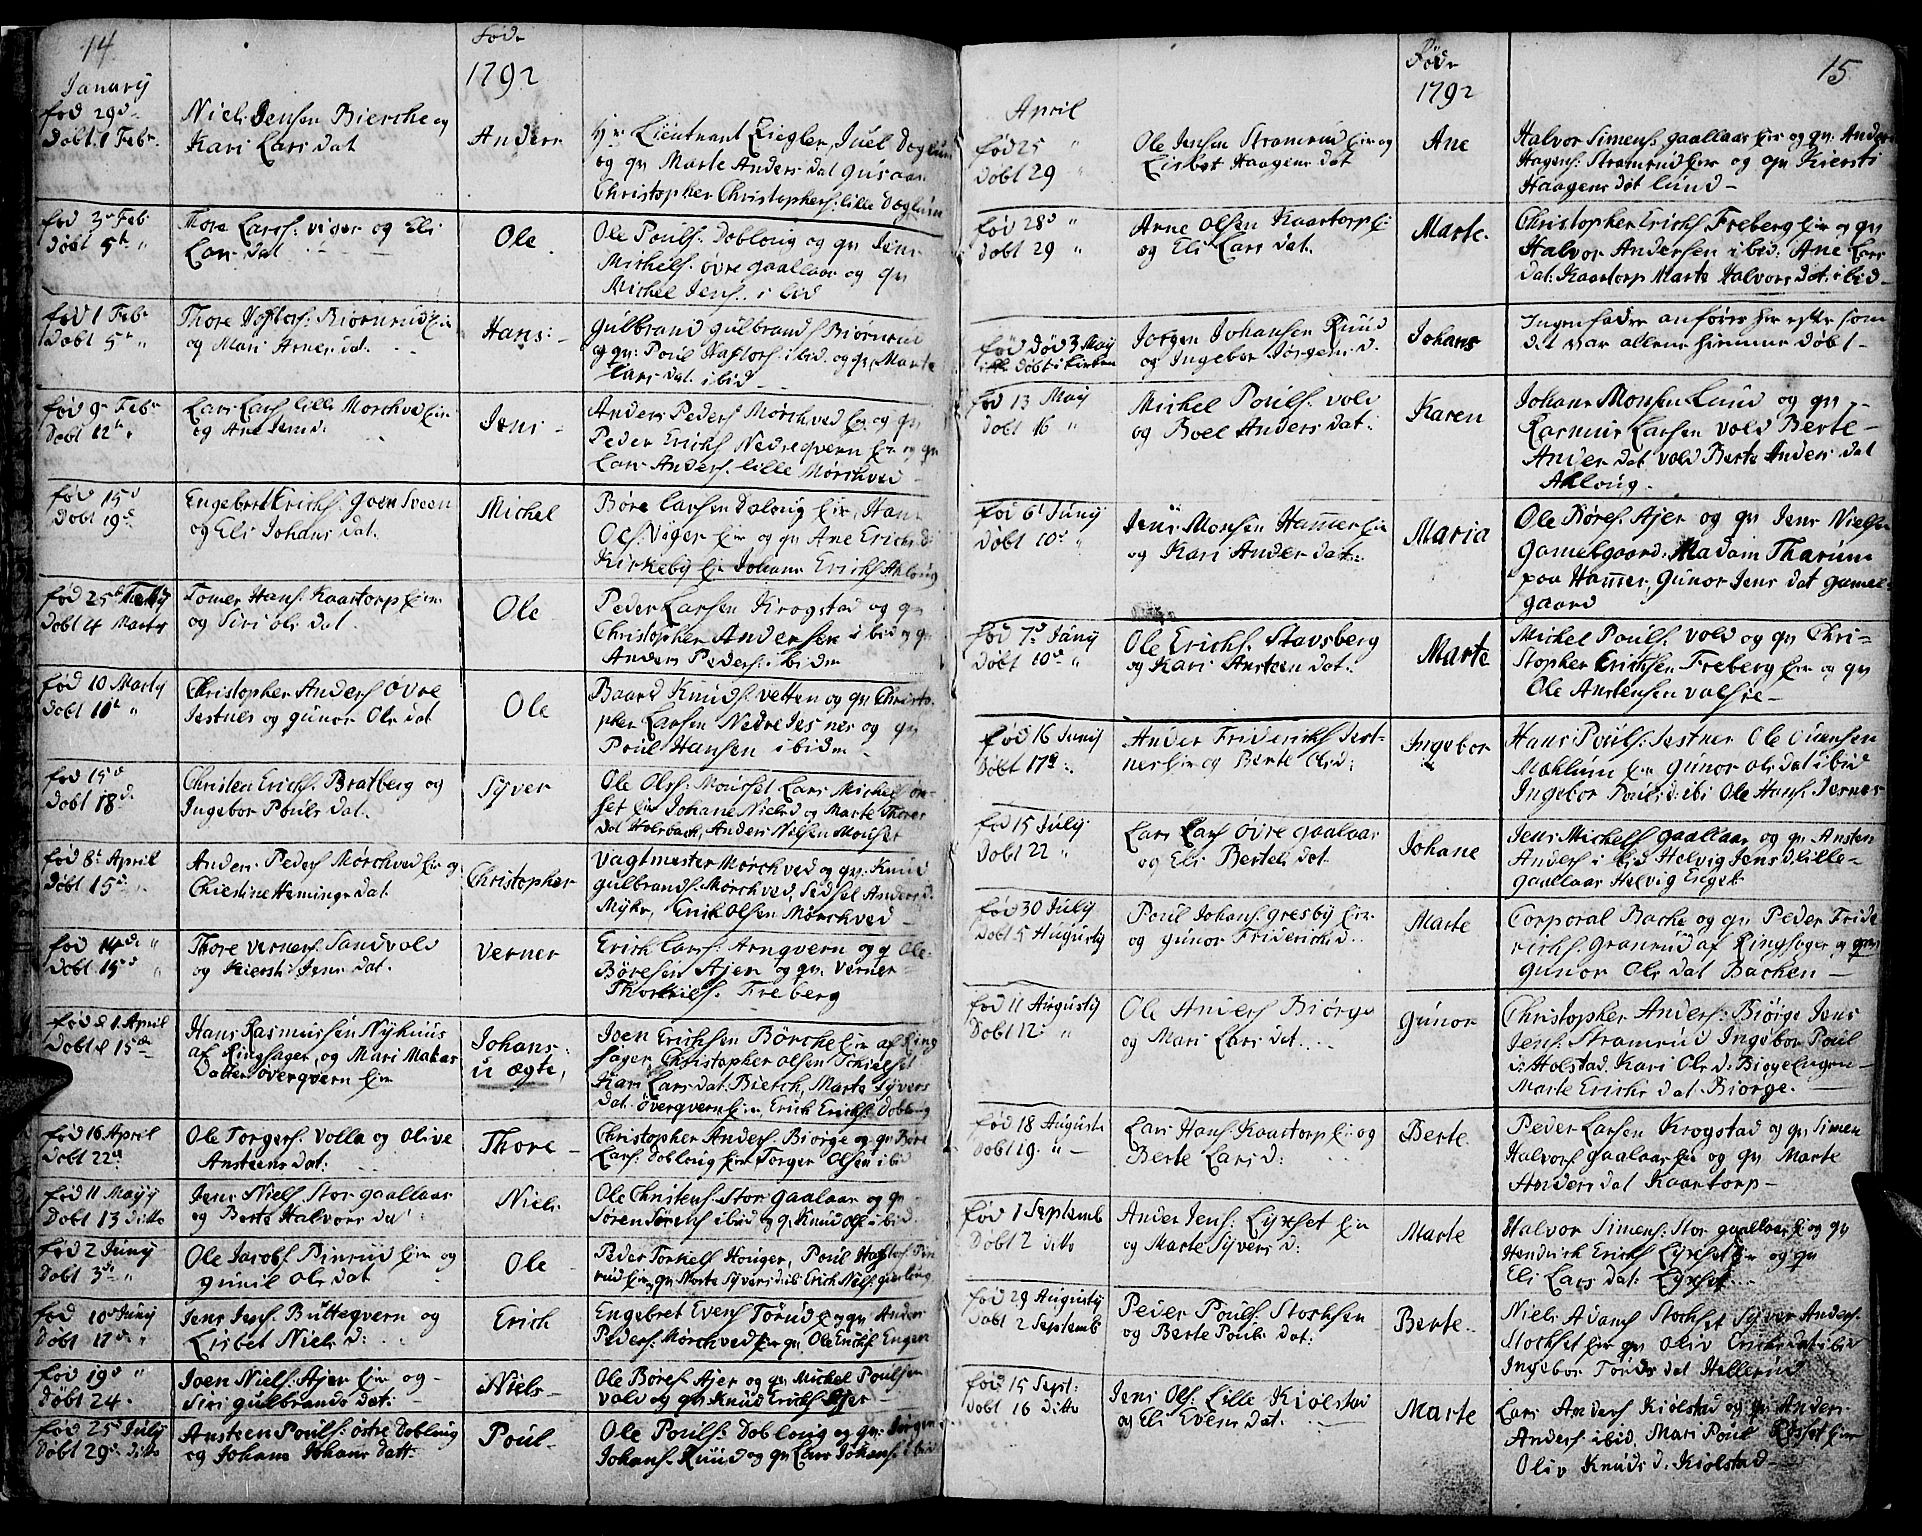 14
Födr
1792
Januarÿ
fød 29d
Døbt. 1 Febr.
Niels Jensen Bierche og
Kari Lars dat
Anders
Hr Lieutnant Ziegler, Juel Doglum
og qv Marte Anders dat Gusaas
Christopher Christophers: lille Døglum
fød 3e Feb
Døbt 5te "
Thore Larss: viger og Eli
Lars dat
Ole
Ole Pouls: Doblong og qv Jens
Michels: øvre gaallaar og qv
Michel Jens: ibid
fød 1 Febr
Døbt 5te "
og Mari Arnes dat.
Hans:
Gulbrand Gulbrands Biørnrud
og qv: Poul Haftors: ibid. og qv Marte
Lars dat ibid
fød 9e Febr
Døbt 12te
Lars Larss lille Mørchved Eie
og Ane Jens d.
Jens
Anders Peders Mørchved Eie og qv
Peder Erichs Nedre qvern Eie og qv
Lars Anders: lille Mørchved
fød 15d
Døbt 19d.
Engebret Erichs. Goen Sveen
og Eli Johans dat.
Michel
Børe Larsen Doloug Eie, Hans
Ols: Viger Eie og qv Ane Erichs d:
Kirkeby Eie Johans Erichs Ahloug
fød 25de Feby
Døbt 4 Marty
Tomer Hans: Kaartorp Eie
og Siri Ols dat.
Ole
Peder Larsen Krogstad og qv
Christopher Andersen ibid og qv
Anders Peders: ibidm
fød 10 Marty
Døbt 11te "
Christopher Anders: Øvre
Jestnes og gunor Ols dat
Ole
Baard Knuds: vetten og qv Christo-
pher Larsen Nedre Jesnes og qv
Poul Hansen ibidm
fød 15de
Døbt 18d.
Christen Erichs. Bratberg og
Ingebor Pouls dat.
Syver
Ole Olss: Mouset Lars Michels
set Eie Johane Niels d og Marte Thores
dat Holsback, Anders Nilsen Mouset
fød 8t April
Døbt 15d.
Anders Peders Mørchved Eie og
Chiestine Hemings dat.
Christopher
Vagtmester Mørchved og qv Knud
Gulbrands: Mørchved, Sidsel Anders d
Myhr, Erik Olsen Mørchved
fød 14d. "
Døbt 15d "
Thore Verners: Sandvold
og Kiersti Jens dat.
Verner
Erich Larss: Arnqvern og q Ole
Børesen Ajer og qv. Verner
Thorkils: Freberg
fød d 1 April
Døbt d 15de
Hans Rasmussen Nykuus
af Ringsager, og Mari Matias
Datter øverqvern Eie
Johans:
u ægte,
Joen Erichsen Børche Eie af Ring
sager, Christopher Olsen Schielset
Kari Lars dat. Bierch, Marte Syvers
dat. øverqvern Eie, Erich Erichs: Doblong
fød 16 April
Døbt 22d
Ole Torgers: Volla og Olive
Ansteens dat:
Thore
Christopher Anders: Biørge og qv Børe
Lars: Doblong Eie Torger Olsen ibid
fød 11 Mayy
Døbt 13 ditto
Jens Niels Stor gaallaar
og Berte Halvors dat:
Niels
Ole Christens: Stor gaalaar og qv
Søren Sørens ibid og qv Knud Ols: ibid.
fød 2 Juny
Døbt 3d "
Ole Jacobs: Pinrud Eie og
gunil Ols dat
Ole
Peder Torkels Houger, Poul Haftors Pin
rud Eie qv Marte Syvers d ibid Erich Niels:
fød 10d Juny
Døbt 17d. "
Jens Jens: Buttegvern og
Lisbet Niels d:
Erich
Engebret Evens Torud Eie qv Anders
Peders: Mørchved Eie qv Ole Erichs Engen
fød 19d "
Døbt 24.
Joen Niels: Ajer Eie og
Siri gulbrands dat:
Niels
Ole Børes: Ajer og qv Michel Poulsen
Vold og qv Knud Erichs Ajer
fød 25d July
Døbt 29d. Ditto
Ansteen Pouls: østre Doblong
og Johana Johans datt.
Poul
Ole Pouls: Doblong og qv: Jørgen
Johans: Ruud og qv Lars Johans: ibid
15
Födr
1792
April
fød 25 "
Døbt 29 "
Ole Jensen Stramrud Eie og
Lisbet Haagens dat
Ane
Halvor Simens: gaallaar Eie og qv. Anders
Hagens: Stramrud Eie og qv Kiersti
Haagens dat Lund
fød 28d "
dobt 29 "
Arne Olsen Kaartorp Ei
og Eli Lars dat.
Marte
Christopher Erichs Freberg Eie og qv
Halvor Andersen ibid. Ane Lars
dat. Kaartorp Marte Halvors dat. ibid
fød død 3 May
Jørgen Johansen Ruud
og Ingebor Jørgens d.
Johans
Ingen fadre anføres her efter som
det var allene hiemme døbt
fød 13 May
døbt 16 "
Michel Pouls: vold
og Boel Anders dat:
Karen
Johans Monsen Lund og qv
Rasmus Larsen vold Berte
Anders dat vold Berte Anders dat
Ahloug.
fød 6t Juny
døbt 10d "
Jens Monsen Hammer Eie
og Kari Anders dat:
Maria
Ole Børes: Ajer og qv Jens Nielsen
Gamelgaard. Madam Tharum
paa Hammer, Gunor Jens dat gamel-
gaard
fød 7d Juny
Døbt 10d "
Ole Erichs. Stavsberg
og Kari Ansteen dat:
Marte
Michel Pouls: vold og qv Chri-
stopher Erichsen Freberg Eie og qv
Ole Anstensen valsie
fød 16 Juny
Døbt 17d
Anders Friderichs Jest-
nes Eie og Berte Ols d:
Ingebor
Hans Pouls: Jestnes Ole
Mæhlum Eie Gunor Ols dat ibid
Ingebor Pouls d: ibi Ole Hans: Jesnes
fød 15 July
Døbt 22 "
Lars Lars øvre gaalaar
og Eli Bertels dat
Johane
Jens Michels gaallaar og qv Ansten
Anders: ibid Helvig Jens d lille
gaallaar Helvig Enget
fød 30 July
Døbt 5 Augusty
Poul Johans: Gresby Eie
og Gunor Friderichs d.
Marte
Corporal Bache og qv Peder Fride
richs. Granrud af Ringsager og qv
Gunor Ols dat Bachen
fød 11 Augusty
Døbt 12 "
Ole Anders Biørge
og Mari Lars dat.
Gunor
Christopher Anders: Biørge Jens
Jens: Stramrud Ingebor Poul
d: Holstad, Kari Ols d: Biøgeengen
Marte Erichs dat Biorge.
fød 18 Augusti
døbt 19. "
Lars Hans Kaartorp Eie og
Berte Lars d:
Berte
Peder Larsen Krogstad og qv Simen
Halvors gaalaar Eie og qv Marte
Anders dat Kaartorp
fød 1 Septemb
Døbt 2 ditto
Anders Jens: Lyxset Eie
og Marte Syvers d:
Marte
Halvor Simens: Stor gaallaar Eie og qv
Hendrich Erichs Lyxset Eie og qv
Eli Lars dat: Lyxset
fød 29 Augusty
døbt 2 Septemb
Peder Pouls: Storhsen
og Berte Pouls dat:
Berte
Niels Adams Stochset Syver Anders:
Stochset Eie qv Oliv Erichs dat ibid
Ingebor Tords dat Hellerud
fød 15 Sept:
døbt 16 ditto
Jens Ols: Lille Kiølstad
og Eli Evens dat:
Marte
Lars Anders Kiølstad og qv Anders
Anders: ibid. Mari Poul Røsset Eie
Oliv Knuds d. Kiolstad